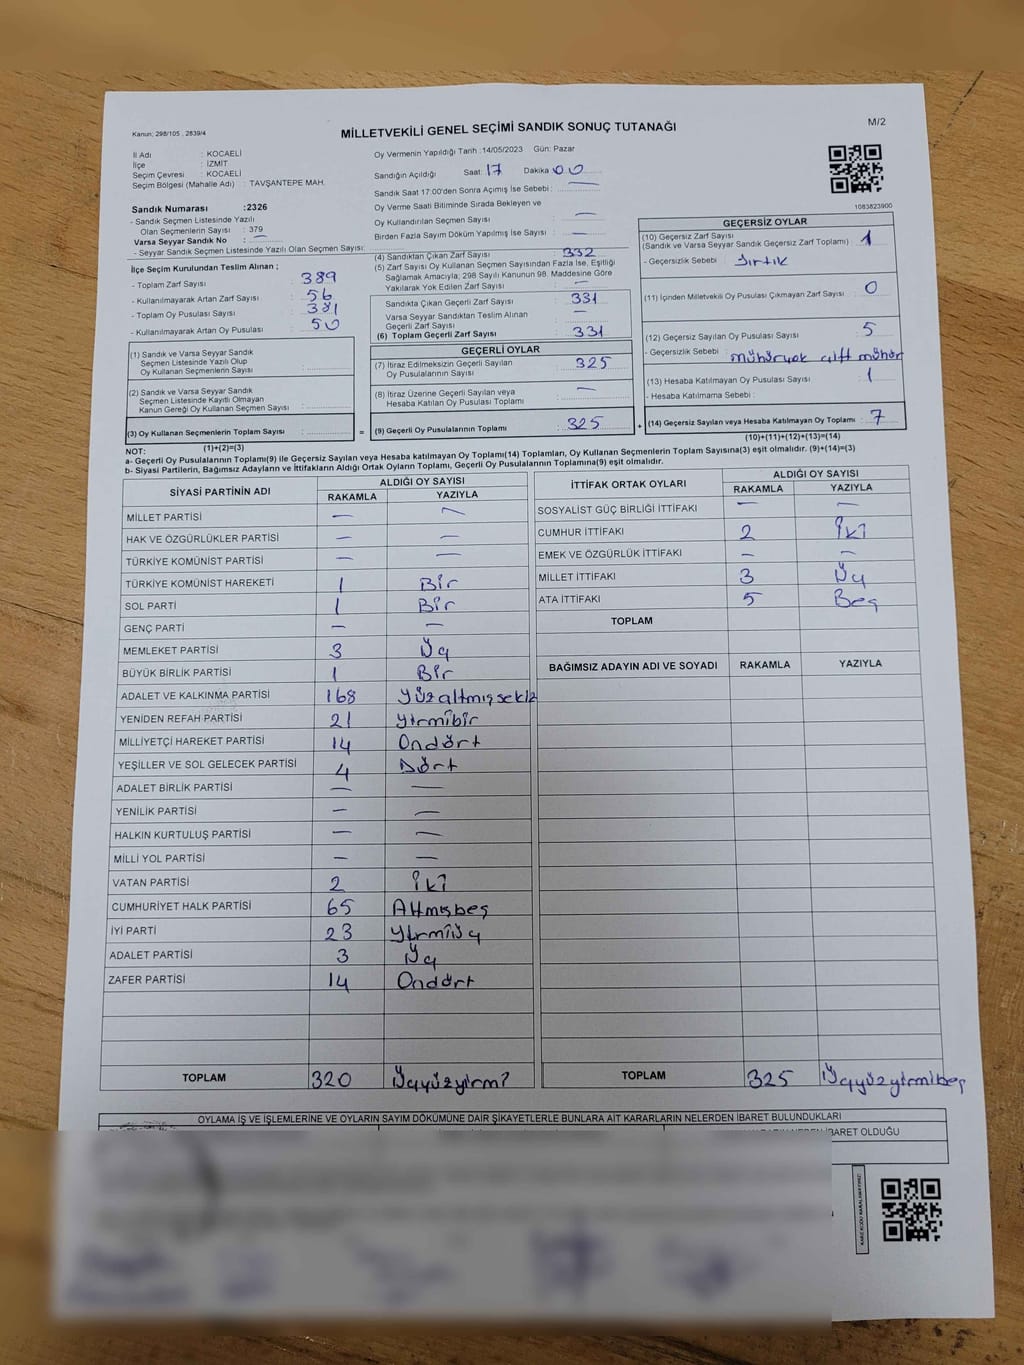 Kanun; 298/105 , 2839/4
MİLLETVEKİLİ GENEL SEÇİMİ SANDIK SONUÇ TUTANAĞI
M/2
İl Adı : KOCAELİ
İlçe : İZMİT
Seçim Çevresi : KOCAELİ
Seçim Bölgesi (Mahalle Adı) : TAVŞANTEPE MAH.
Sandık Numarası :2326
- Sandık Seçmen Listesinde Yazılı
Olan Seçmenlerin Sayısı : 379
Varsa Seyyar Sandık No : —
- Seyyar Sandık Seçmen Listesinde Yazılı Olan Seçmen Sayısı:
İlçe Seçim Kurulundan Teslim Alınan ;
- Toplam Zarf Sayısı : 389
- Kullanılmayarak Artan Zarf Sayısı : 56
- Toplam Oy Pusulası Sayısı : 381
- Kullanılmayarak Artan Oy Pusulası : 50
(1) Sandık ve Varsa Seyyar Sandık
Seçmen Listesinde Yazılı Olup
Oy Kullanan Seçmenlerin Sayısı :
(2) Sandık ve Varsa Seyyar Sandık
Seçmen Listesinde Kayıtlı Olmayan
Kanun Gereği Oy Kullanan Seçmen Sayısı :
(3) Oy Kullanan Seçmenlerin Toplam Sayısı : =
(1)+(2)=(3)
Oy Vermenin Yapıldığı Tarih :14/05/2023 Gün: Pazar
Sandığın Açıldığı Saat: 17 Dakika 00
Sandık Saat 17:00'den Sonra Açımış İse Sebebi : —
Oy Verme Saati Bitiminde Sırada Bekleyen ve
Oy Kullandırılan Seçmen Sayısı : —
Birden Fazla Sayım Döküm Yapılmış İse Sayısı : —
(4) Sandıktan Çıkan Zarf Sayısı : 332
(5) Zarf Sayısı Oy Kullanan Seçmen Sayısından Fazla İse, Eşitliği
Sağlamak Amacıyla; 298 Sayılı Kanunun 98. Maddesine Göre
Yakılarak Yok Edilen Zarf Sayısı : —
Sandıkta Çıkan Geçerli Zarf Sayısı : 331
Varsa Seyyar Sandıktan Teslim Alınan
Geçerli Zarf Sayısı : —
(6) Toplam Geçerli Zarf Sayısı : 331
GEÇERLİ OYLAR
(7) İtiraz Edilmeksizin Geçerli Sayılan
Oy Pusulalarının Sayısı : 325
(8) İtiraz Üzerine Geçerli Sayılan veya
Hesaba Katılan Oy Pusulası Toplamı : —
(9) Geçerli Oy Pusulalarının Toplamı : 325 +
1083823900
GEÇERSİZ OYLAR
(10) Geçersiz Zarf Sayısı
(Sandık ve Varsa Seyyar Sandık Geçersiz Zarf Toplamı) : 1
- Geçersizlik Sebebi : yırtık
(11) İçinden Milletvekili Oy Pusulası Çıkmayan Zarf Sayısı : 0
(12) Geçersiz Sayılan Oy Pusulası Sayısı : 5
- Geçersizlik Sebebi : mühüryok çift mühür
(13) Hesaba Katılmayan Oy Pusulası Sayısı : 1
- Hesaba Katılmama Sebebi :
(14) Geçersiz Sayılan veya Hesaba Katılmayan Oy Toplamı : 7
(10)+(11)+(12)+(13)=(14)
NOT:
a- Geçerli Oy Pusulalarının Toplamı(9) ile Geçersiz Sayılan veya Hesaba katılmayan Oy Toplamı(14) Toplamları, Oy Kullanan Seçmenlerin Toplam Sayısına(3) eşit olmalıdır. (9)+(14)=(3)
b- Siyasi Partilerin, Bağımsız Adayların ve İttifakların Aldığı Ortak Oyların Toplamı, Geçerli Oy Pusulalarının Toplamına(9) eşit olmalıdır.
SİYASİ PARTİNİN ADI ALDIĞI OY SAYISI
RAKAMLA YAZIYLA
MİLLET PARTİSİ — —
HAK VE ÖZGÜRLÜKLER PARTİSİ — —
TÜRKİYE KOMÜNİST PARTİSİ — —
TÜRKİYE KOMÜNİST HAREKETİ 1 Bir
SOL PARTİ 1 Bir
GENÇ PARTİ — —
MEMLEKET PARTİSİ 3 Üç
BÜYÜK BİRLİK PARTİSİ 1 Bir
ADALET VE KALKINMA PARTİSİ 168 Yüzaltmışsekiz
YENİDEN REFAH PARTİSİ 21 yirmibir
MİLLİYETÇİ HAREKET PARTİSİ 14 Ondört
YEŞİLLER VE SOL GELECEK PARTİSİ 4 Dört
ADALET BİRLİK PARTİSİ — —
YENİLİK PARTİSİ — —
HALKIN KURTULUŞ PARTİSİ — —
MİLLİ YOL PARTİSİ — —
VATAN PARTİSİ 2 iki
CUMHURİYET HALK PARTİSİ 65 Altmışbeş
İYİ PARTİ 23 Yirmiüç
ADALET PARTİSİ 3 Üç
ZAFER PARTİSİ 14 Ondört
TOPLAM 320 Üçyüzyirmi
İTTİFAK ORTAK OYLARI ALDIĞI OY SAYISI
RAKAMLA YAZIYLA
SOSYALİST GÜÇ BİRLİĞİ İTTİFAKI — —
CUMHUR İTTİFAKI 2 iki
EMEK VE ÖZGÜRLÜK İTTİFAKI — —
MİLLET İTTİFAKI 3 Üç
ATA İTTİFAKI 5 Beş
TOPLAM
BAĞIMSIZ ADAYIN ADI VE SOYADI RAKAMLA YAZIYLA
TOPLAM 325 Üçyüzyirmibeş
OYLAMA İŞ VE İŞLEMLERİNE VE OYLARIN SAYIM DÖKÜMÜNE DAİR ŞİKAYETLERLE BUNLARA AİT KARARLARIN NELERDEN İBARET BULUNDUKLARI
İBARET OLDUĞU